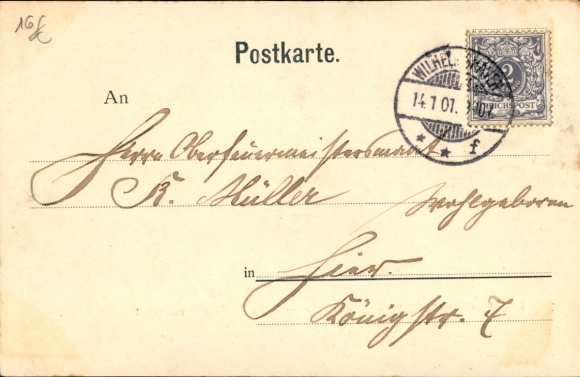 16
Postkarte.
WILHELMSHAVEN
2
14.1 01.
REICHSPOST
* * f
An
Herrn Oberfeuermeistersmaat
K. Müller Wohlgeboren
in Hier.
Königstr. 7